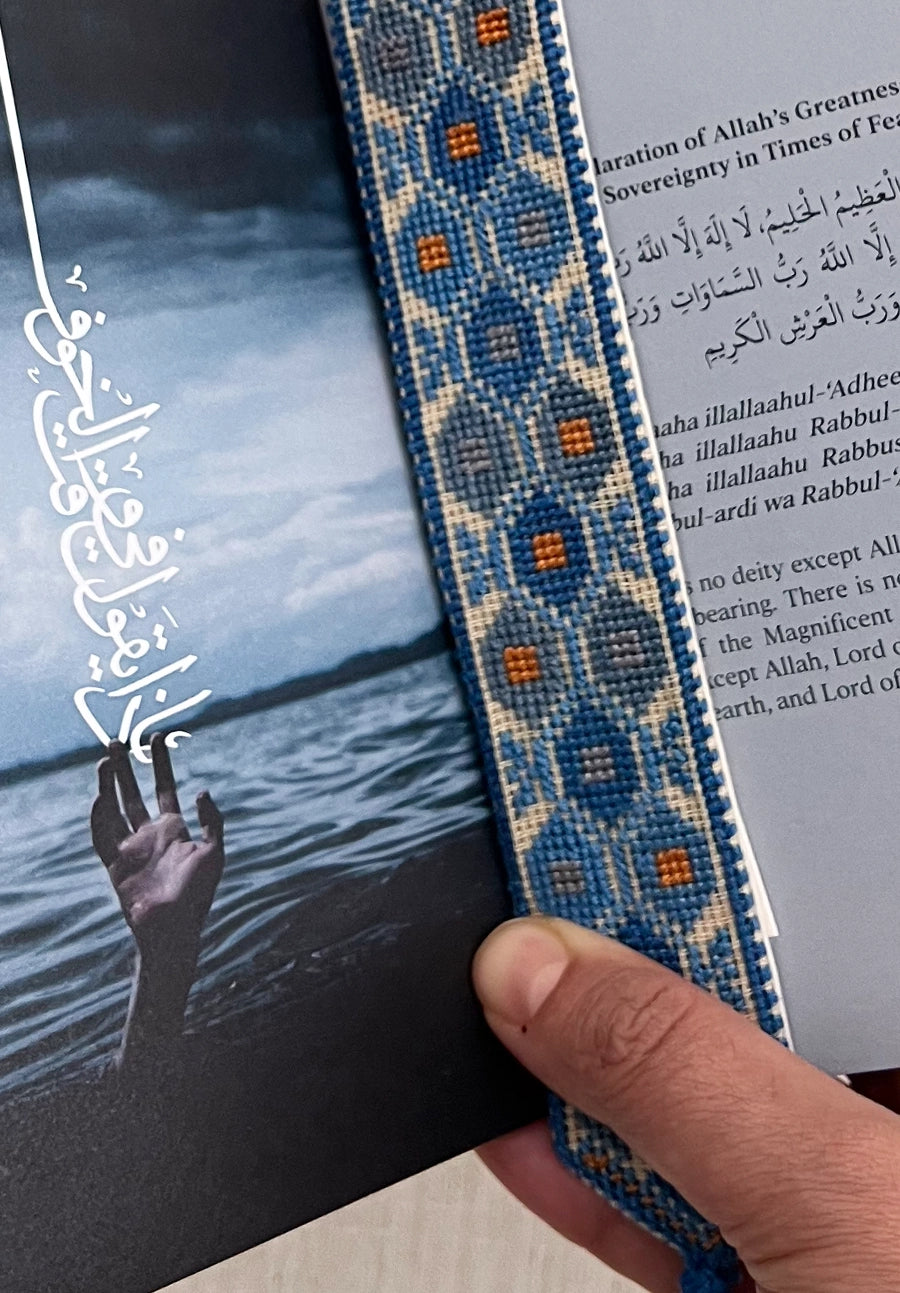 يقول الخوف
laration of Allah’s Greatnes
Sovereignty in Times of Fea
الْعَظِيمُ الْحَلِيمُ، لَا إِلَهَ إِلَّا اللَّهُ رَ
إِلَّا اللَّهُ رَبُّ السَّمَاوَاتِ وَرَبُّ
وَرَبُّ الْعَرْشِ الْكَرِيمِ
aha illallaahul-‘Adhee
ha illallaahu Rabbul-
ha illallaahu Rabbus
bul-ardi wa Rabbul-‘
s no deity except All
bearing. There is n
f the Magnificent
cept Allah, Lord o
earth, and Lord of